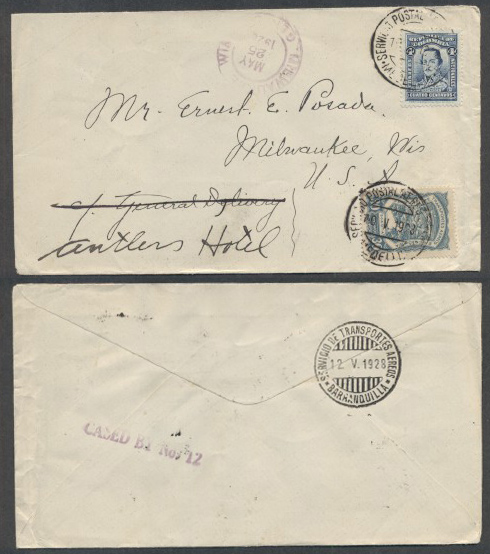 SERVICIO POSTAL
MAY
25
192
WIS
MILWAU
REPUBLICA DE
COLOMBIA
4
CUATRO CENTAVOS
Mr. Ernest E. Posada.
Milwaukee, Wis
U. S. A
c/ General Delivery
antlers Hotel
SERVICIO POSTAL AEREO
10 V. 1928
SERVICIO DE TRANSPORTES AEREOS
12. V. 1928
BARRANQUILLA
CASED BY No. 12